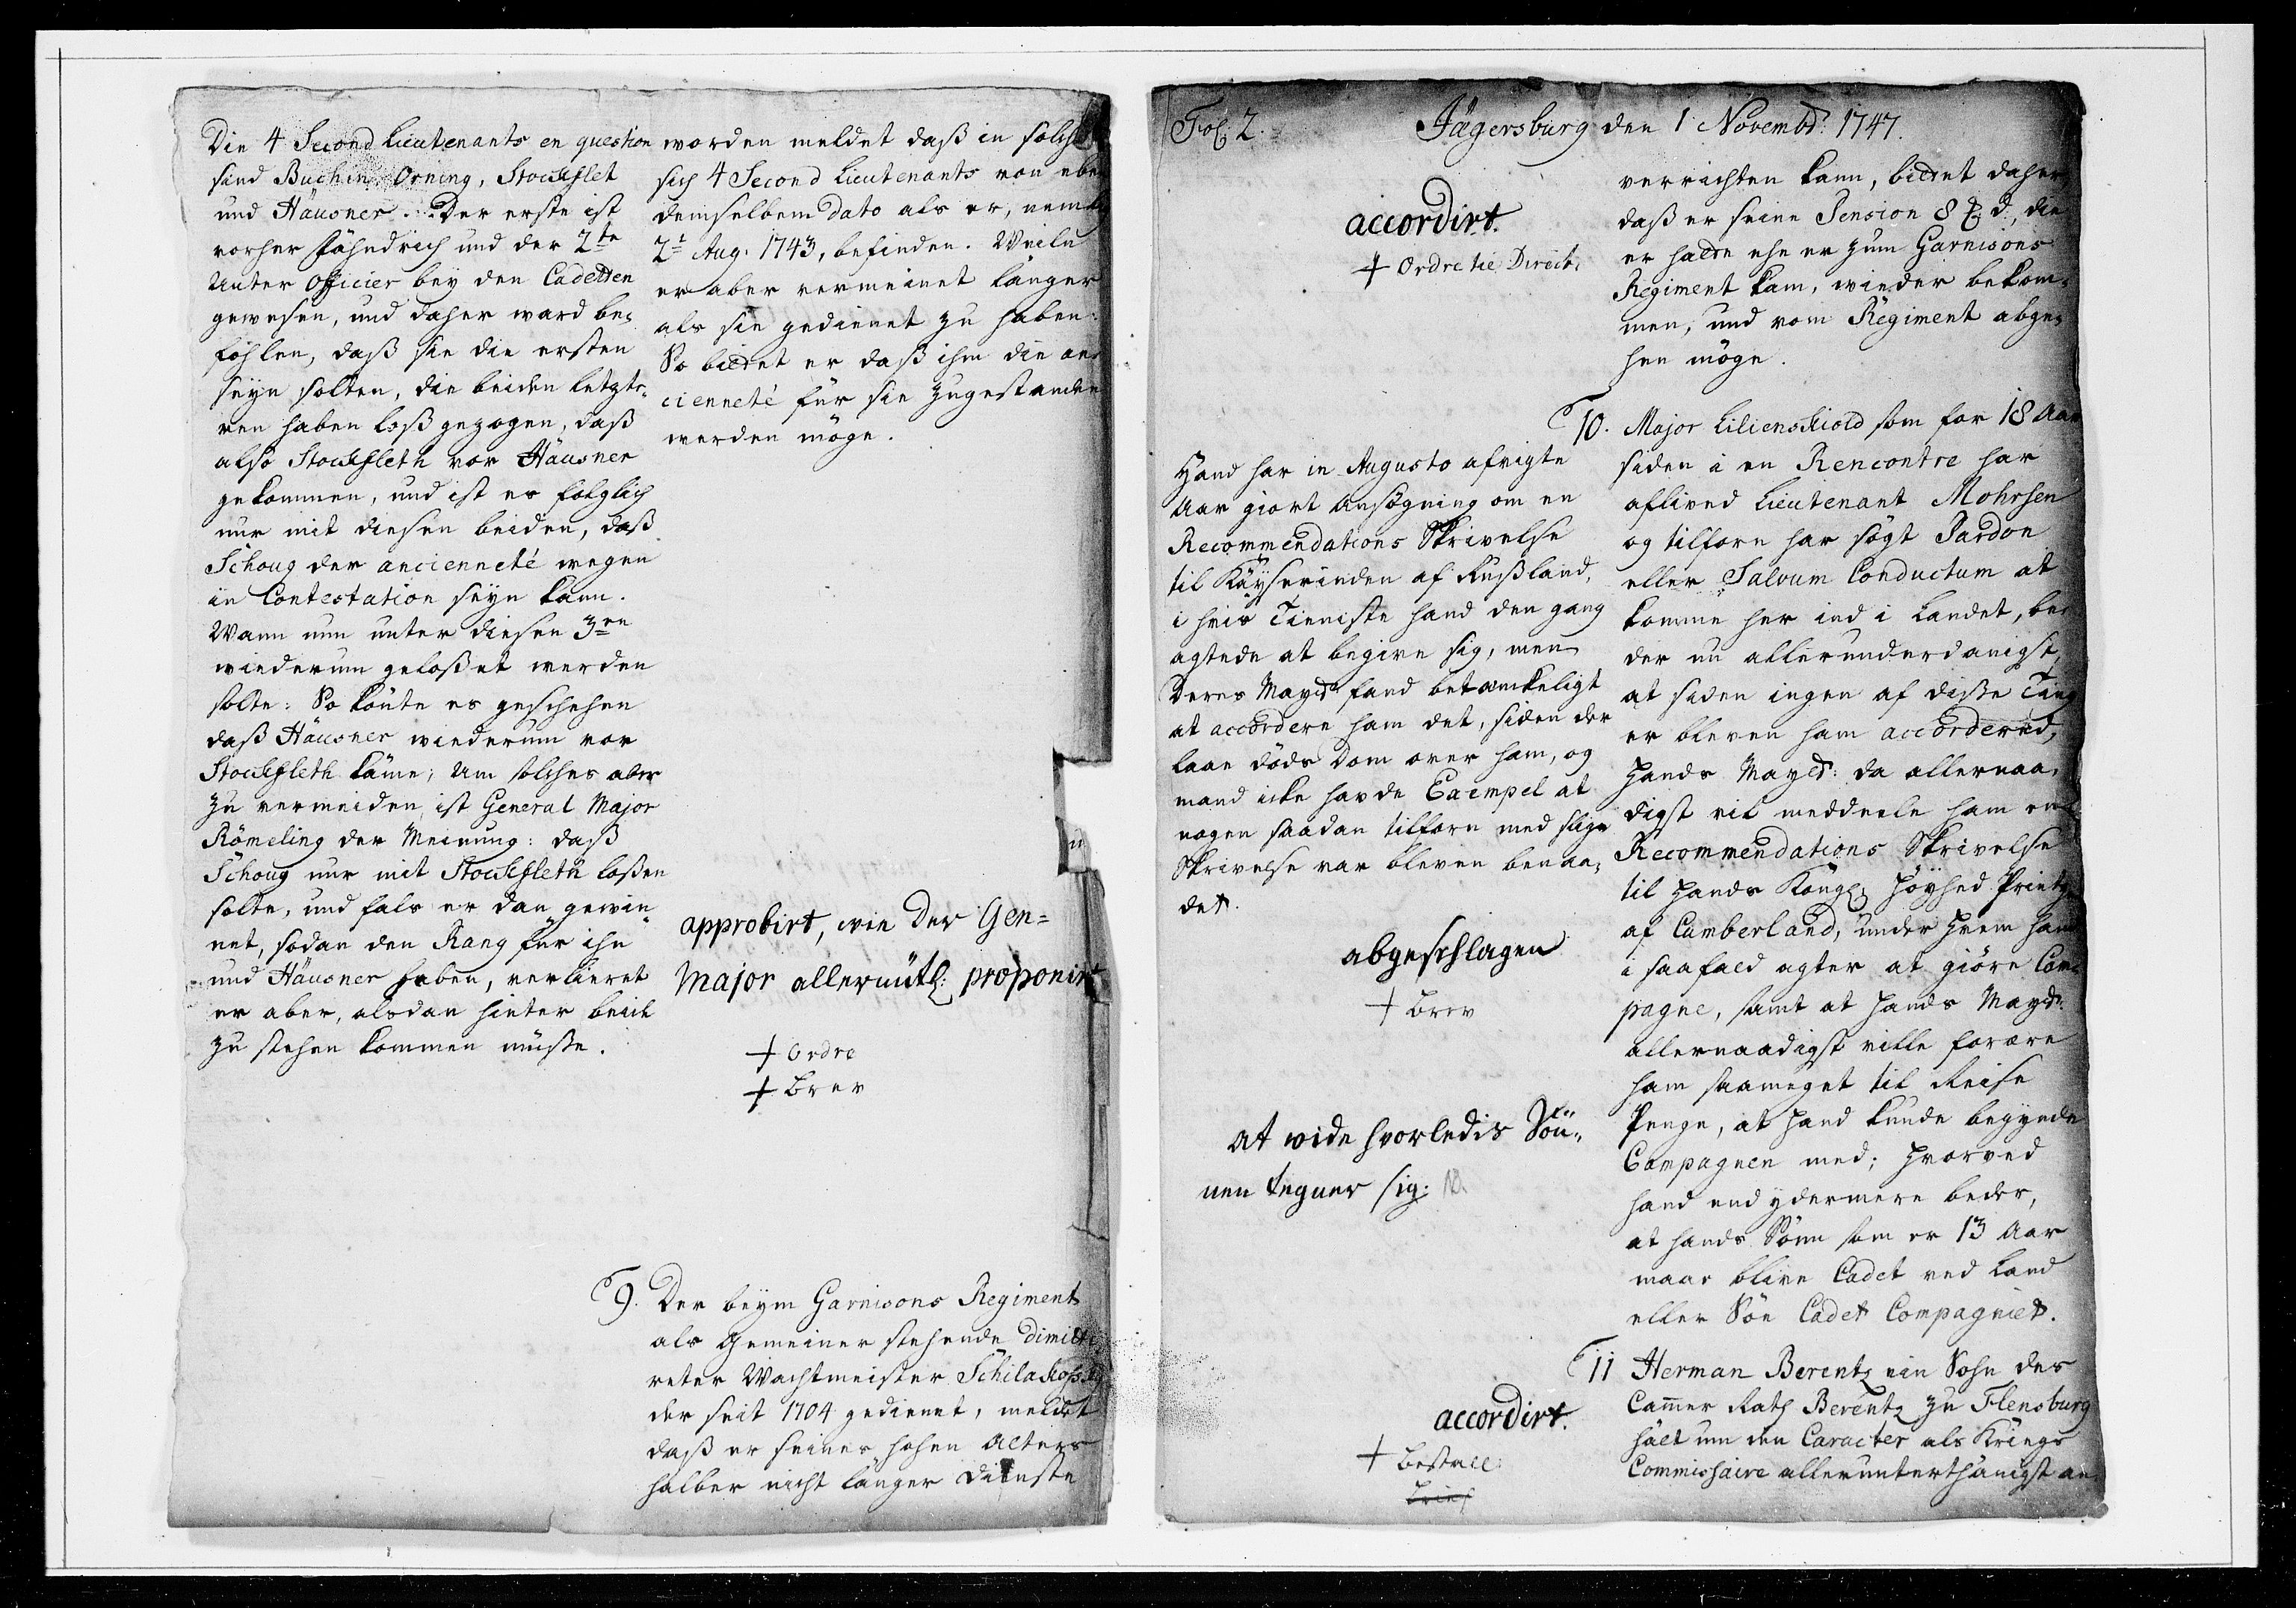 Die 4 Second Lieutenants en question
sind Buchin, Orning, Stockflet
und Häusner. Der erste ist
vorher Fähndrich und der 2te
Unter Officier bey den Cadetten
gewesen, und daher ward be-
fohlen, daß sie die ersten
seyn solten, die beiden letzte-
ren haben loß gezogen, daß
also Stockfleth vor Häusner
gekommen, und ist es folglich
nur mit diesen beiden, daß
Schoug der ancienneté wegen
in Contestation seyn kann.
Wann nun unter diesen 3en
wiederum geloßet werden
solte: So könte es geschehen
daß Häusner wiederum vor
Stockfleth käme; Um solches aber
zu vermeiden, ist General Major
Römeling der Meinung: daß
Schoug nur mit Stockfleth loßen
solte, und fals er dan gewin-
net, sodan den Rang für ihn
und Häusner haben, verlieret
er aber, alsdan hinter beide
zu stehen kommen müste.
worden meldet daß in solche
sich 4 Second Lieutenants von eben
demselbem Dato als er,
2t Aug. 1743, befinden. Weiln
er aber vermeinet länger
als sie gedienet zu haben:
So bittet er daß ihm die an-
cienneté für sie zugestanden
werden möge.
approbirt, wie der Gen=
Major allerunth: proponirt
+ Ordre
+ Brev
9. Der beym Garnisons Regiment
als Gemeiner stehende dimitti-
reter Wachtmeister
der seit 1704 gedienet, meldet
daß er seines hohen Alters
halber nicht länger Dienste
Fol: 2. Jägersburg den 1 Novembr: 1747.
accordirt.
+ Ordre til Direct:
verrichten kann, bittet daher,
daß er seine Pension 8 ß d:, die
er hatte ehe er zum Garnisons
Regiment kam, wieder bekom-
men, und vom Regiment abge-
hen möge.
Hand har in Augusto afvigte
Aar giort Ansögning om en
Recommendations Skrivelse
til Käyserinden af Rußland,
i hvis Tieniste hand den gang
agtede at begive sig, men
Deres Mayts fand betænkeligt
at accordere ham det, siden der
laae döds Dom over ham, og
mand icke havde Exempel at
nogen saadan tilforn med slig
Skrivelse var bleven benaa-
det.
abgeschlagen
+ Brev
At vide hvorledis Sön-
nen tegner sig.
10. Major Lilienskiold som for 18 Aar
siden i en Rencontre har
aflived Lieutenant Mohrsen
og tilforn har sögt Pardon
eller Salvum Conductum at
komme her ind i Landet, be-
der nu allerunderdanigst,
at siden ingen af disse Ting
er bleven ham accordered,
Hands Mayts: da allernaa-
digst vil meddeele ham en
Recommendations Skrivelse
til Hands Kongl: Höyhed Printz
af Cumberland, under hvem hand
i saafald agter at giöre Com-
pagne, samt at Hands Mayts:
allernaadigst ville forære
ham saameget til Reise
Penge, at hand kunde begynde
Campagnen med; hvorved
hand end ydermere beder,
at hands Sönn som er 13 Aar
maae blive Cadet ved Land
eller Söe Cadet Compagniet.
accordirt.
+ Bestall:
Brief
11 Herman Berentz ein Sohn des
Cammer Rath Berentz zu Flensburg
hält um den Caracter als Kriegs
Commissaire allerunterthänigst an.